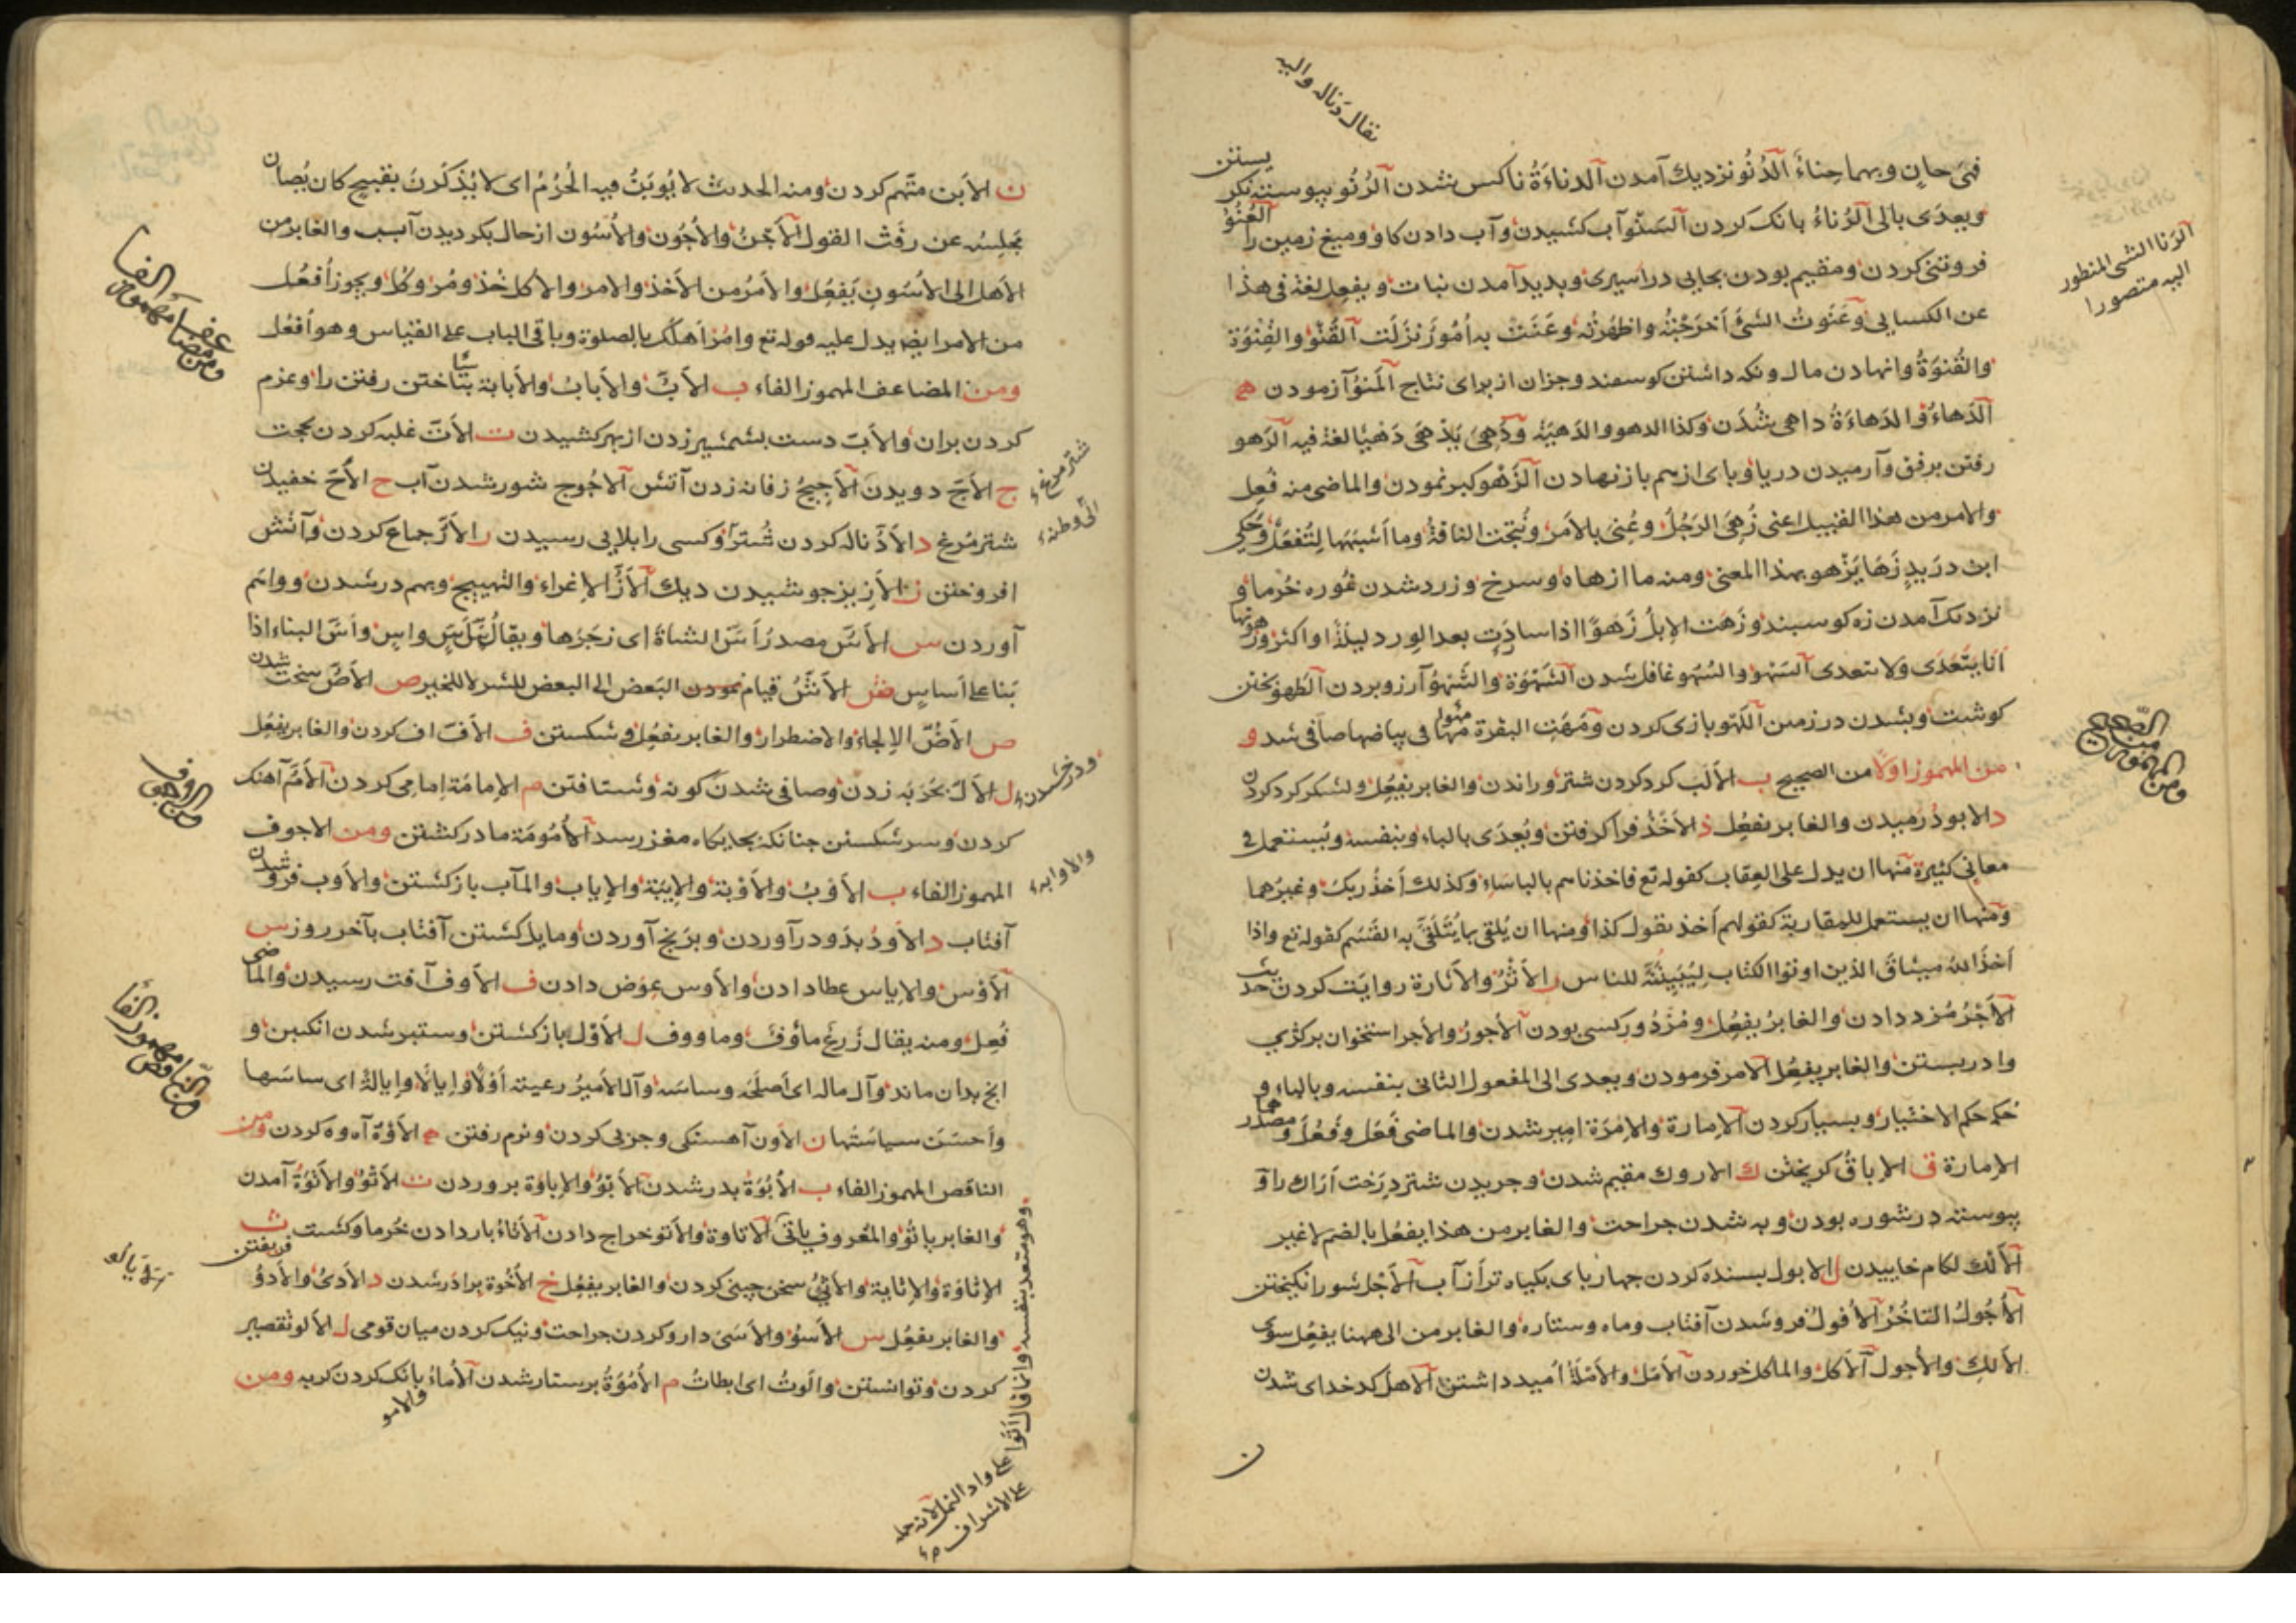 يقال دناله واليه
فهى حانٍ وبهما حِناءٌ الدُّنُو نزديك آمدن الدناءَةُ ناكس شدن الرُنُو پيوسته نكر يستن
ويعدَى بالى الرُناءُ بانك كردن السَنْو آب كشيدن وآب دادن كاو وميغ زمين را العُنُوُّ
فروتنى كردن ومقيم بودن بجايى در اسيرى وبديد آمدن نبات ويفعِل لغة فى هذا
عن الكسايى وعَنَوتُ الشئَ أخرَجْتُه واظهَرتُه وعَنَت به أُمُورٌ نَزَلَت القُنُوُّ والقِنْوَة
والقُنْوَةُ وانهادن مال ونكه داشتن كوسفند وجزان از براى نتاج المَنْوُ آزمودن ه
الدَهاءُ والدَهاءَةُ داهى شُدَن وكذا الدهو والدَهيَة ودَهِىَ يَدْهَى دَهْيًا لغة فيه الرَهو
رفتن برفق وآرميدن دريا وباى ازهم باز نهادن الزَهْو كبر نمودن والماضى منه فُعِل
والامر من هذا القبيل اعنى زُهِىَ الرَجُلُ وعُنِىَ بالامر ونُتِجَت الناقةُ وما أشبَهَها لِتُفعَلْ وحُكِىَ
ابن دريدٍ زَهَا يَزْهو بهذا المعنى ومنه ما ازهاه وسرخ وزرد شدن غُوره خُرما و
نزديك آمدن زه كوسبند وزَهَت الإبلُ زَهوًا اذا سارَت بعد الوِرد ليلةً او اكثر وزهوتها
أنا يتَعَدَى ولا يتعدى السَهْو والسُهو غافل شدن الشَهْوَة والشَهْوُ آرزو بردن الطَهو پختن
كوشت وبشدن در زمين اللَهْو بازى كردن ومَهَت البقرة مَهْوًا مَها فى بياضها صافى شد و
من المهموز اوّلا من الصحيح ب الأَلَب كرد كردن شتر وراندن والغابر يفعِل ولشكر كرد كردن
د الابودُ رميدن والغابر يفعِل ذ الأخذُ فرا كرفتن ويُعدَى بالباء وبنفسه ويُستعمل فى
معانى كثيرة منها ان يدل على العِقاب كقوله تع فاخذناهم بالباساءِ وكذلك أخذُ ربك وغيرُهما
ومنها ان يستعمل للمقاربة كقولهم أخذ يقول كذا ومنها ان يُلقى بما يُتَلَقَّى به القَسَم كقوله تع واذا
أخذَ اللهُ ميثاقَ الذين اوتوا الكتاب لِتُبَيِنُنَّه للناس ر الأثْرُ والأثارة روايَت كردن حديث
الأَجْرُ مُزد دادن والغابرُ يفعِل ومُزدُور كسى بودن الأجورُ والأجر استخوان بركژى
وا دربستن والغابر يفعِل الأمر فرمودن ويعدى الى المفعول الثانى بنفسه وبالباء و
حُكم حكم الاختيار وبسيار كردن الإمارة والإمرَة امير شدن والماضى فَعَل وفَعُل ومصدر هما
الإمارة ق الإباقُ كريختن ك الاروك مقيم شدن وچريدن شتر درَخت اراك را و
پيوسته در شوره بودن وبه شدن جراحت والغابر من هذا يفعُل بالضم لا غير
الأَلك لكام خاييدن ل الابول بسنده كردن چهار پاى بكياه تر از آب الأجْل شور انكيختن
الأُجُولُ التاخُرُ الأُفولُ فرو شدن آفتاب وماه وستاره والغابر من الى ههنا يفعِل سوى
الألكِ والأجول الأكل والماكل خوردن الأمَل والأمَلةُ اُميد داشتن الأهل كدخداى شدن
ن
الرَنا الشى المنظور
اليه مقصورا
ومن المهموز
من الصحيح
ن الأبن متّهم كردن ومنه الحديث لا يُوبَنُ فيه الحُرَمُ اى لا يُذكَرنَ بقبيح كان يُصان
مجلِسُه عن رفَث القول الأَجْنُ والأُجُون والأُسُون از حال بكرديدن آب والغابر من
الأهل الى الأُسُونِ يَفعِل والأمرُ من الأخذ والامر والأكل خُذ ومُر وكُل ويجوز اُفعُل
من الامر ايضا يدل عليه قوله تع وامُر أهلَك بالصلوة وباقى الباب على القياس وهو اُفعُل
ومن المضاعف المهموز الفاء ب الأبُّ والأَبابُ والأَبابَة بتاختن رفتن را وعزم
كردن بران والأبّ دست بشمشير زدن از بهر كشيدن ت الأتّ غلبه كردن بحجت
ج الأَجّ دويدن الأجِيجُ زفانه زدن آتش الأُجُوج شور شدن آب ح الأَحّ خفيدن
شتر مُرغ د الأَدّ ناله كردن شُتر وكسى را بلايى رسيدن ر الأرّ جماع كردن وآتش
افروختن ز الأزِيز جوشيدن ديك الأَزُّ الإغراء والتهييج وبهم در شدن وواهم
آوردن س الأَسّ مصدرُ أَسَّ الشاةَ اى زجَرَها ويقالُ إسّ إسّ وأَسَّ البناءَ اذا
بَنا على أساسٍ ش الأشُّ قيام نمودن البَعض الى البعض للشر لا للخير ص الأصّ سخت شدن
ض الأضُّ الإلجاءُ والاضطرار والغابر يفعُل وشكستن ف الأفّ اف كردن والغابر يفعُل
ل الألّ بحَربَه زدن وصافى شدن كونه وشتافتن م الإمامَة إمامى كردن الأمّ آهنك
كردن وسر شكستن چنانكه بجايكاه مغز رسد الأُمُومَة مادر كشتن ومن الاجوف
المهموز الفاء ب الأَوبُ والأوْبة والإيبَة والإياب والمآب باز كشتن والأوب فرو شدن
آفتاب د الأودُ بدَود در آوردن وبرنج آوردن ومايل كشتن آفتاب بآخر روز س
الأَوْس والإياس عطا دادن والأوس عِوَض دادن ف الأوف آفت رسيدن والماضى
فُعِل ومنه يقال زرعٌ مأوُفٌ وما ووف ل الأَوْل باز كشتن وستبر شدن انكبين و
انچ بدان ماند وآل ماله اى اَصلَحَه وساسَه وآل الأميرُ رعيته أَوْلاً وإيالاً وإيالةً اى ساسَها
وأحسَنَ سياسَتَها ن الأون آهستكى وچربى كردن ونرم رفتن ه الأَوْهُ آه وه كردن ومن
الناقص المهموز الفاء ب الأُبُوَةُ پدر شدن الأَبْوُ والإباوَة پروردن ت الأتْوُ والأَتْوَةُ آمدن
والغابر ياتُو والمَعْروف ياتى الاتاوة والأتو خراج دادن الأتاءُ بار دادن خُرما وكشت ث
الإثاوَة والإثاية والأَثْىُ سخن چينى كردن والغابر يفعِل خ الأُخُوة براذر شدن د الأدىُ والأدوُ فريفتن
والغابر يفعِل س الأسْوُ والأسَىَ دارو كردن جراحت ونيك كردن ميان قومى ل الألو تقصير
كردن وتوانستن والَوتُ اى ابطاتُ م الأُمُوَةُ پرستار شدن الأُماءُ بانك كردن كربه ومن
والامو
شتر مرغ
الى وطنه
ودرخشيدن
والاوابه
وهو متعد بنفسه وانما قال اتوا على واد النمل لانه حمله
على الاشراف
ومن مضاعف
مهموز الفا
ومن الاجوف
ومن الناقص
مهموز الفا